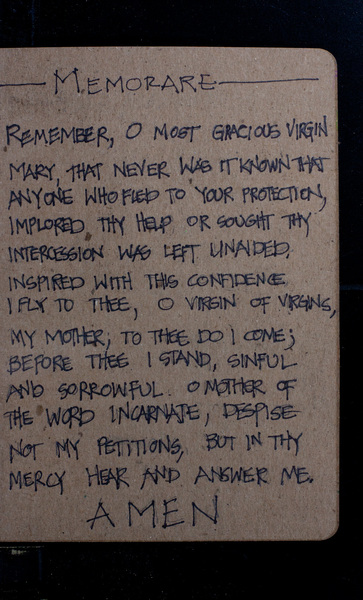 MEMORARE
REMEMBER, O MOST GRACIOUS VIRGIN
MARY, THAT NEVER WAS IT KNOWN THAT
ANYONE WHO FLED TO YOUR PROTECTION,
IMPLORED THY HELP OR SOUGHT THY
INTERCESSION WAS LEFT UNAIDED.
INSPIRED WITH THIS CONFIDENCE
I FLY TO THEE, O VIRGIN OF VIRGINS,
MY MOTHER; TO THEE DO I COME;
BEFORE THEE I STAND, SINFUL
AND SORROWFUL. O MOTHER OF
THE WORD INCARNATE, DESPISE
NOT MY PETITIONS, BUT IN THY
MERCY HEAR AND ANSWER ME.
AMEN